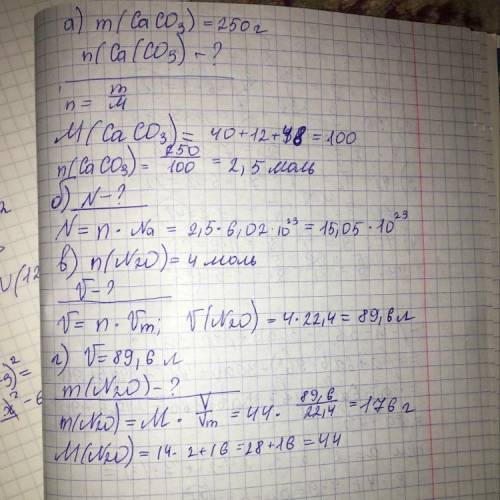 а) m(CaCO₃) = 250 г
n(Ca(CO₃) - ?
n = m/M
M(CaCO₃) = 40+12+48 = 100
n(CaCO₃) = 250/100 = 2,5 моль
б) N - ?
N = n · Na = 2,5 · 6,02 · 10²³ = 15,05 · 10²³
в) n(N₂O) = 4 моль
V - ?
V = n · Vm; V(N₂O) = 4 · 22,4 = 89,6 л
г) V = 89,6 л
m(N₂O) - ?
m(N₂O) = M · V/Vm = 44 · 89,6/22,4 = 176 г
M(N₂O) = 14 · 2 + 16 = 28 + 16 = 44